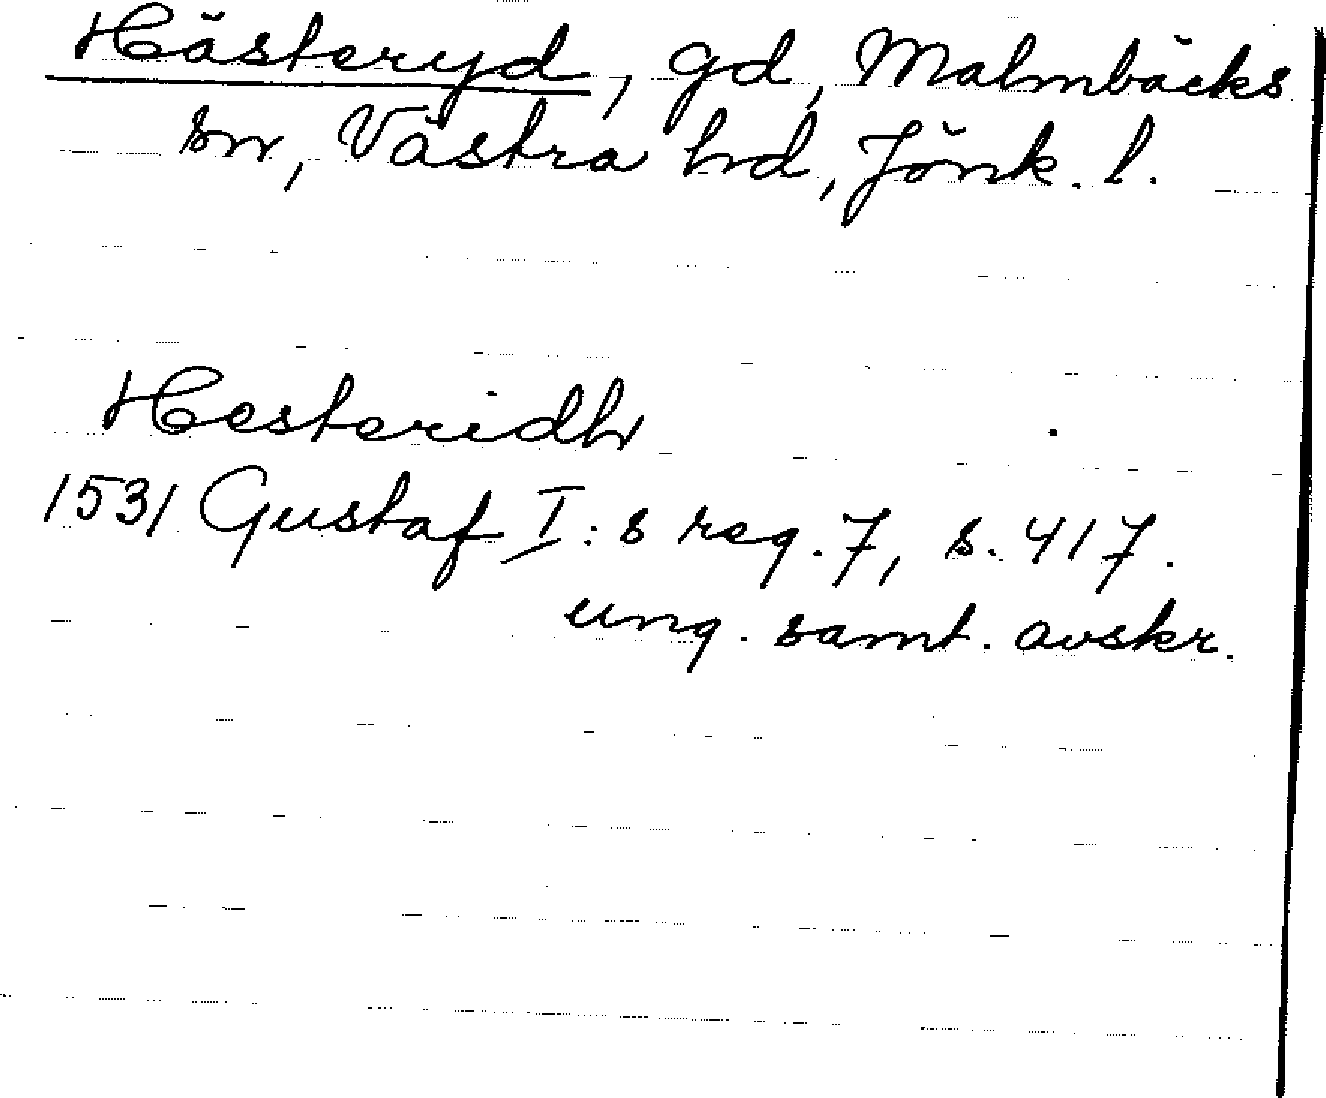 Hästeryd, gd, Malmbäcks
sn, Västra hd, Jönk. l.
Hesteridh
1531 Gustaf I:s reg. 7, s. 417.
ung. samt. avskr.